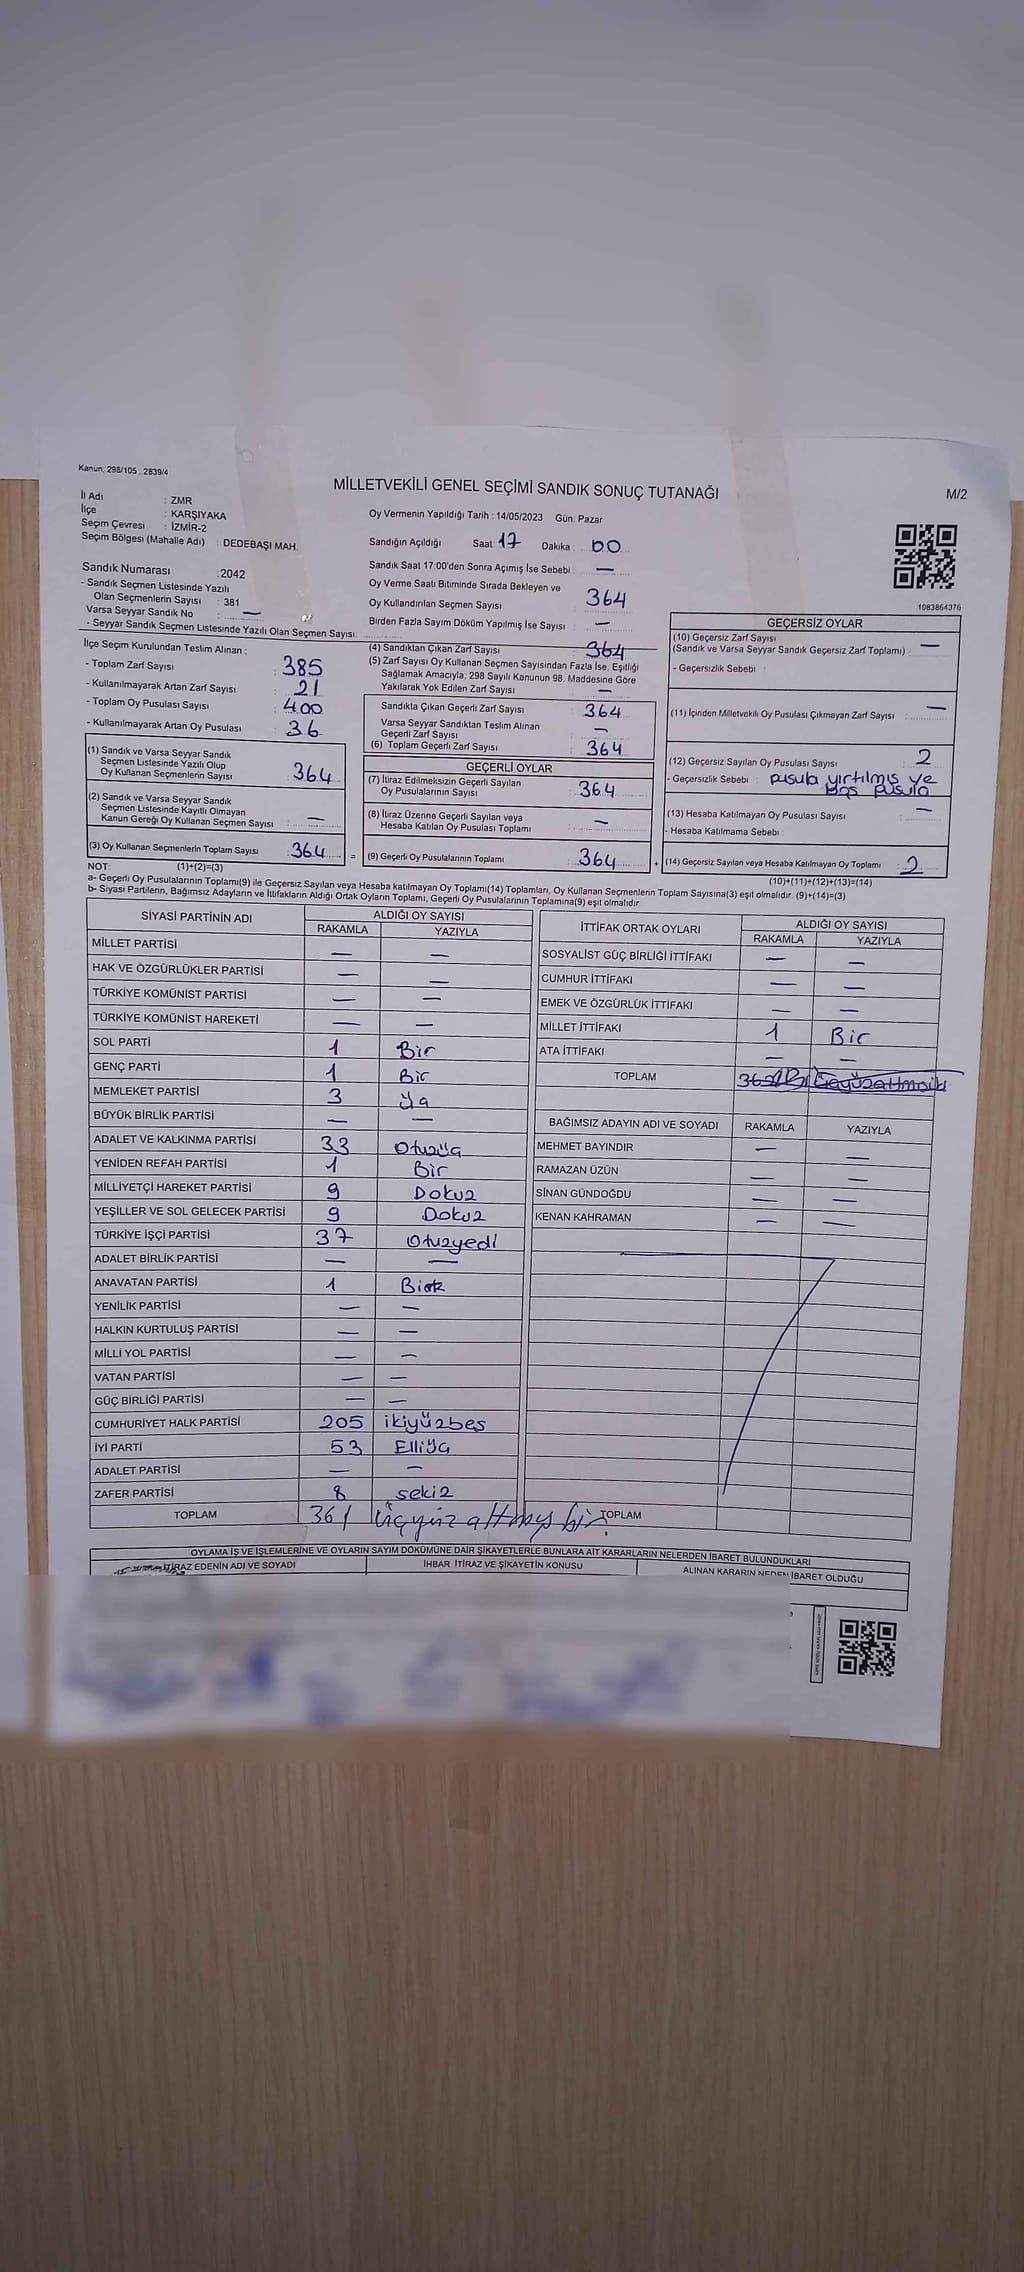 Kanun: 298/105 , 2839/4
MİLLETVEKİLİ GENEL SEÇİMİ SANDIK SONUÇ TUTANAĞI
M/2
İl Adı : ZMR
İlçe : KARŞIYAKA
Seçim Çevresi : İZMİR-2
Seçim Bölgesi (Mahalle Adı) : DEDEBAŞI MAH.
Sandık Numarası : 2042
- Sandık Seçmen Listesinde Yazılı
Olan Seçmenlerin Sayısı : 381
Varsa Seyyar Sandık No : —
- Seyyar Sandık Seçmen Listesinde Yazılı Olan Seçmen Sayısı:
Oy Vermenin Yapıldığı Tarih : 14/05/2023 Gün: Pazar
Sandığın Açıldığı Saat: 17 Dakika : 00
Sandık Saat 17:00'den Sonra Açımış İse Sebebi : —
Oy Verme Saati Bitiminde Sırada Bekleyen ve
Oy Kullandırılan Seçmen Sayısı : 364
Birden Fazla Sayım Döküm Yapılmış İse Sayısı : —
1083864376
İlçe Seçim Kurulundan Teslim Alınan :
- Toplam Zarf Sayısı : 385
- Kullanılmayarak Artan Zarf Sayısı : 21
- Toplam Oy Pusulası Sayısı : 400
- Kullanılmayarak Artan Oy Pusulası : 36
(1) Sandık ve Varsa Seyyar Sandık
Seçmen Listesinde Yazılı Olup
Oy Kullanan Seçmenlerin Sayısı : 364
(2) Sandık ve Varsa Seyyar Sandık
Seçmen Listesinde Kayıtlı Olmayan
Kanun Gereği Oy Kullanan Seçmen Sayısı : —
(3) Oy Kullanan Seçmenlerin Toplam Sayısı : 364
(4) Sandıktan Çıkan Zarf Sayısı : 364
(5) Zarf Sayısı Oy Kullanan Seçmen Sayısından Fazla İse, Eşitliği
Sağlamak Amacıyla; 298 Sayılı Kanunun 98. Maddesine Göre
Yakılarak Yok Edilen Zarf Sayısı : —
Sandıkta Çıkan Geçerli Zarf Sayısı : 364
Varsa Seyyar Sandıktan Teslim Alınan
Geçerli Zarf Sayısı : —
(6) Toplam Geçerli Zarf Sayısı : 364
GEÇERLİ OYLAR
(7) İtiraz Edilmeksizin Geçerli Sayılan
Oy Pusulalarının Sayısı : 364
(8) İtiraz Üzerine Geçerli Sayılan veya
Hesaba Katılan Oy Pusulası Toplamı : —
= (9) Geçerli Oy Pusulalarının Toplamı : 364 +
GEÇERSİZ OYLAR
(10) Geçersiz Zarf Sayısı
(Sandık ve Varsa Seyyar Sandık Geçersiz Zarf Toplamı) : —
- Geçersizlik Sebebi :
(11) İçinden Milletvekili Oy Pusulası Çıkmayan Zarf Sayısı : —
(12) Geçersiz Sayılan Oy Pusulası Sayısı : 2
- Geçersizlik Sebebi : pusula yırtılmış ve
boş pusula
(13) Hesaba Katılmayan Oy Pusulası Sayısı : —
- Hesaba Katılmama Sebebi :
(14) Geçersiz Sayılan veya Hesaba Katılmayan Oy Toplamı : 2
NOT: (1)+(2)=(3) (10)+(11)+(12)+(13)=(14)
a- Geçerli Oy Pusulalarının Toplamı(9) ile Geçersiz Sayılan veya Hesaba katılmayan Oy Toplamı(14) Toplamları, Oy Kullanan Seçmenlerin Toplam Sayısına(3) eşit olmalıdır. (9)+(14)=(3)
b- Siyasi Partilerin, Bağımsız Adayların ve İttifakların Aldığı Ortak Oyların Toplamı, Geçerli Oy Pusulalarının Toplamına(9) eşit olmalıdır
SİYASİ PARTİNİN ADI ALDIĞI OY SAYISI
RAKAMLA YAZIYLA
MİLLET PARTİSİ — —
HAK VE ÖZGÜRLÜKLER PARTİSİ — —
TÜRKİYE KOMÜNİST PARTİSİ — —
TÜRKİYE KOMÜNİST HAREKETİ — —
SOL PARTİ 1 Bir
GENÇ PARTİ 1 Bir
MEMLEKET PARTİSİ 3 Üç
BÜYÜK BİRLİK PARTİSİ — —
ADALET VE KALKINMA PARTİSİ 33 Otuzüç
YENİDEN REFAH PARTİSİ 1 Bir
MİLLİYETÇİ HAREKET PARTİSİ 9 Dokuz
YEŞİLLER VE SOL GELECEK PARTİSİ 9 Dokuz
TÜRKİYE İŞÇİ PARTİSİ 37 Otuzyedi
ADALET BİRLİK PARTİSİ — —
ANAVATAN PARTİSİ 1 Bir
YENİLİK PARTİSİ — —
HALKIN KURTULUŞ PARTİSİ — —
MİLLİ YOL PARTİSİ — —
VATAN PARTİSİ — —
GÜÇ BİRLİĞİ PARTİSİ — —
CUMHURİYET HALK PARTİSİ 205 ikiyüzbeş
İYİ PARTİ 53 Elliüç
ADALET PARTİSİ — —
ZAFER PARTİSİ 8 sekiz
TOPLAM 361 üçyüz altmış bir
İTTİFAK ORTAK OYLARI ALDIĞI OY SAYISI
RAKAMLA YAZIYLA
SOSYALİST GÜÇ BİRLİĞİ İTTİFAKI — —
CUMHUR İTTİFAKI — —
EMEK VE ÖZGÜRLÜK İTTİFAKI — —
MİLLET İTTİFAKI 1 Bir
ATA İTTİFAKI — —
TOPLAM
BAĞIMSIZ ADAYIN ADI VE SOYADI RAKAMLA YAZIYLA
MEHMET BAYINDIR — —
RAMAZAN ÜZÜN — —
SİNAN GÜNDOĞDU — —
KENAN KAHRAMAN — —
TOPLAM
OYLAMA İŞ VE İŞLEMLERİNE VE OYLARIN SAYIM DÖKÜMÜNE DAİR ŞİKAYETLERLE BUNLARA AİT KARARLARIN NELERDEN İBARET BULUNDUKLARI
İTİRAZ EDENİN ADI VE SOYADI İHBAR, İTİRAZ VE ŞİKAYETİN KONUSU ALINAN KARARIN NEDEN İBARET OLDUĞU